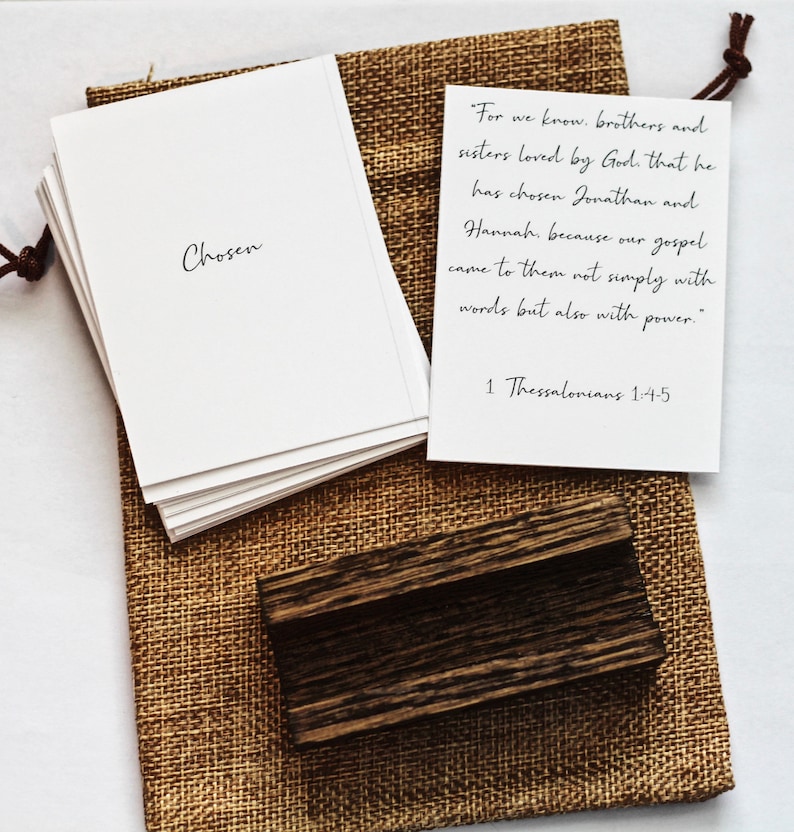 Chosen
"For we know, brothers and
sisters loved by God, that he
has chosen Jonathan and
Hannah, because our gospel
came to them not simply with
words but also with power."
1 Thessalonians 1:4-5